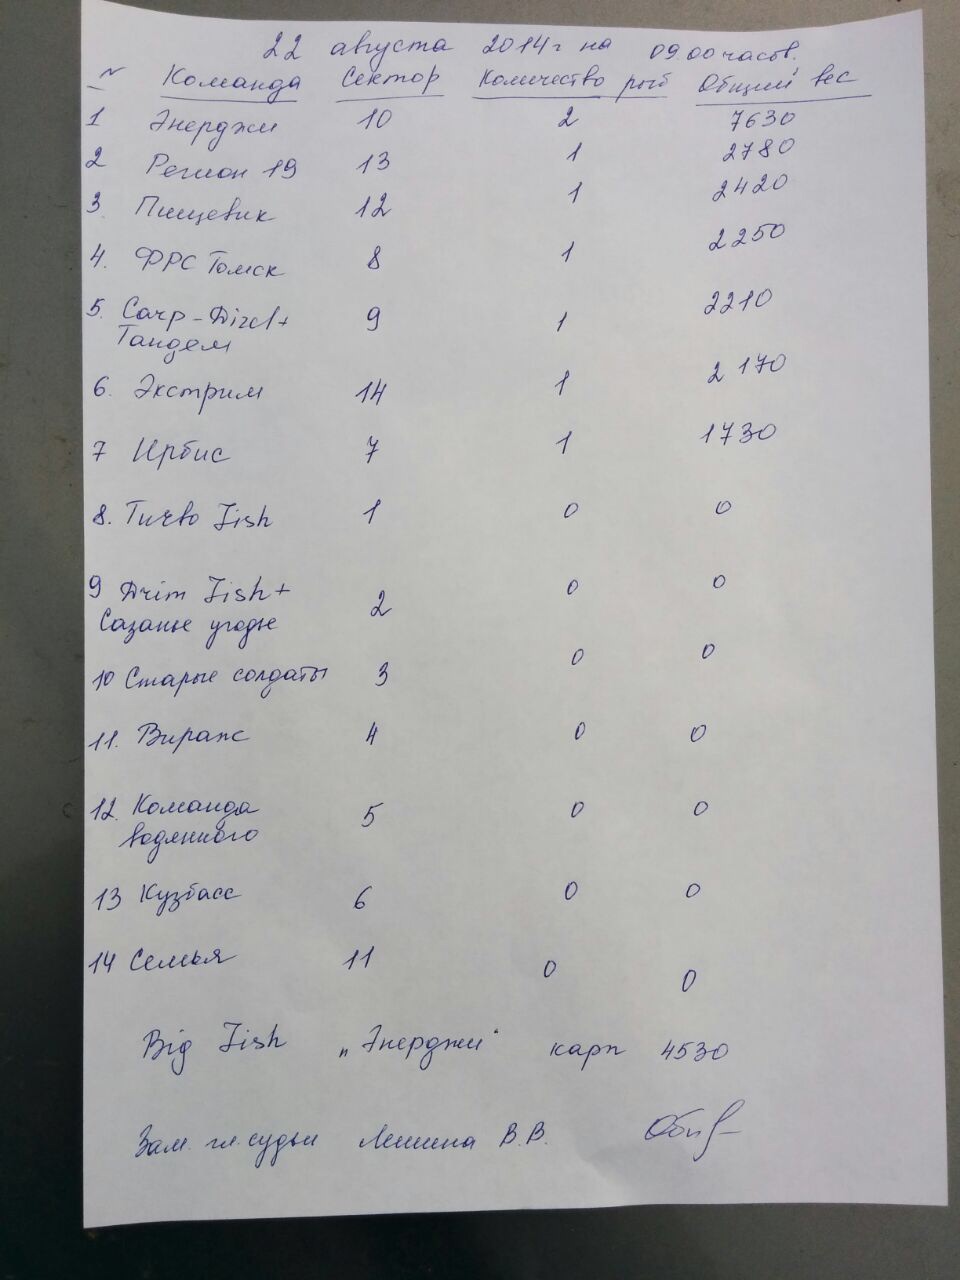 22 августа 2014 г на 09.00 часов.
N Команда Сектор Количество рыб Общий вес
1 Энерджи 10 2 7630
2 Регион 19 13 1 2780
3. Пищевик 12 1 2420
4. ФРС Томск 8 1 2250
5. Carp - 9 1 2210
Тандем
6. Экстрим 14 1 2170
7 Ирбис 7 1 1730
8. Turbo Fish 1 0 0
9 Drim Fish + 2 0 0
Сазанье угодье
10 Старые солдаты 3 0 0
11. Вираж 4 0 0
12. Команда 5 0 0
водянного
13 Кузбасс 6 0 0
14 Семья 11 0 0
Big Fish "Энерджи" карп 4530
Зам. гл. судьи В.В.